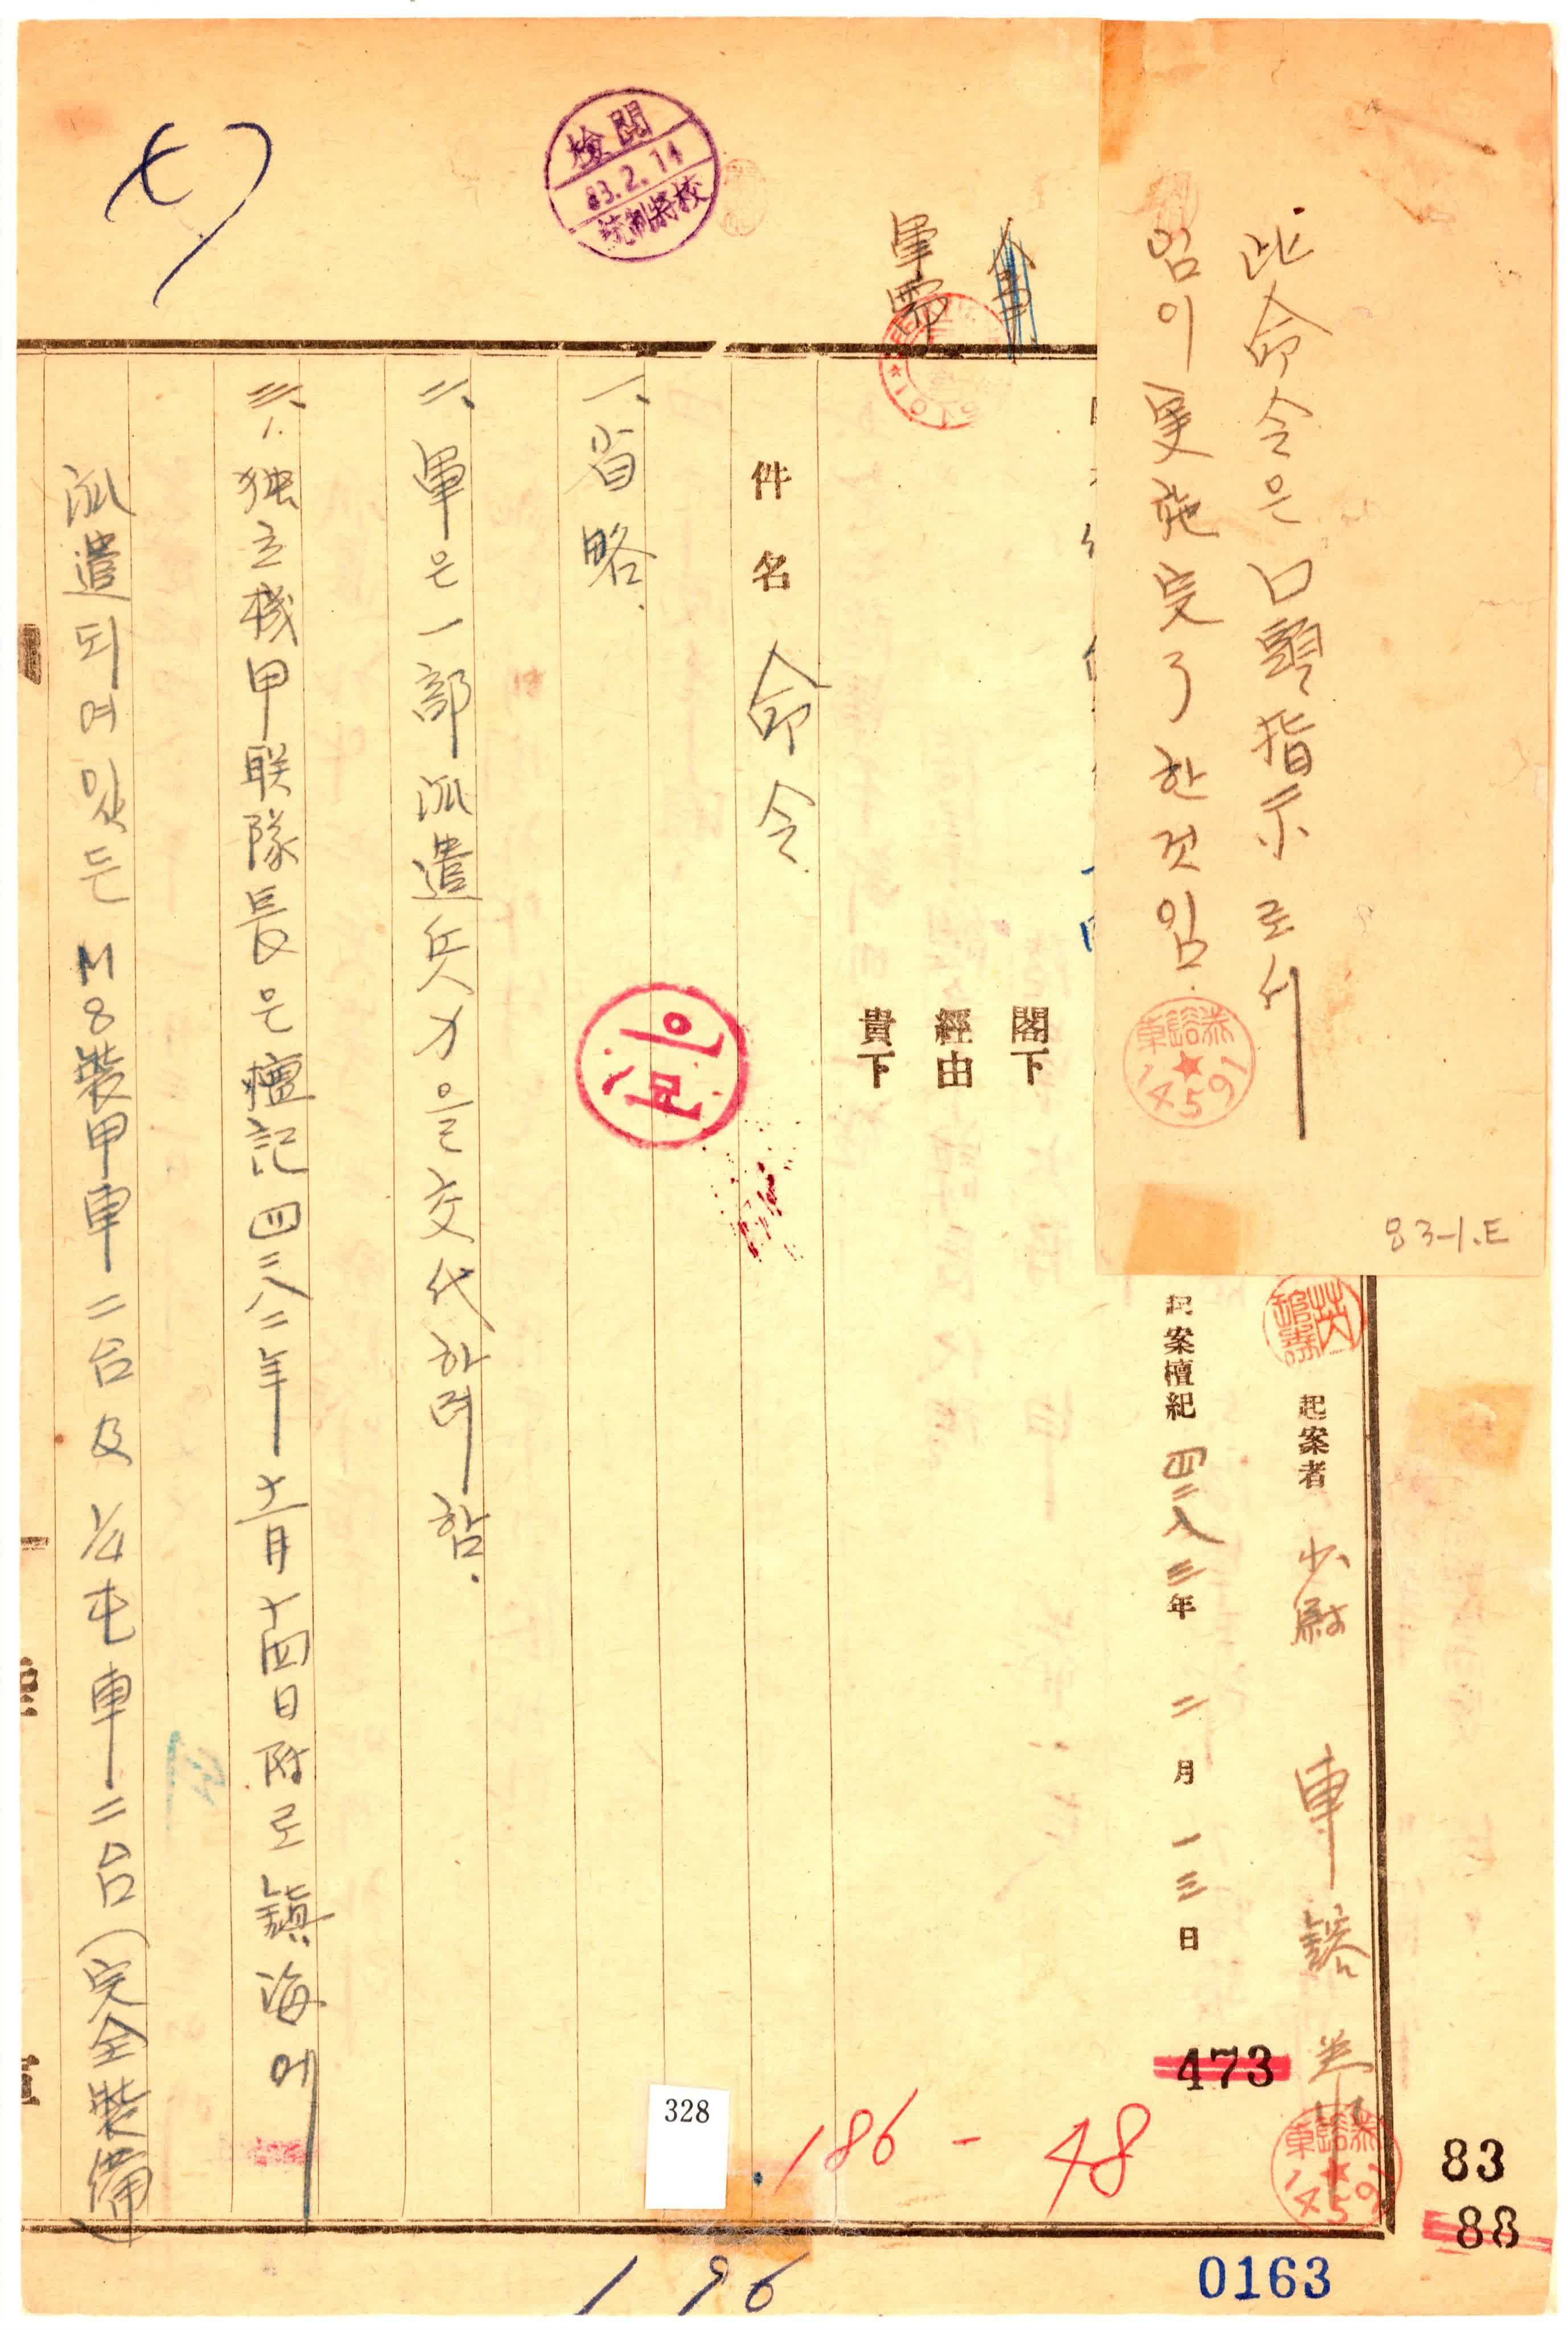 此命令은 口頭指示로서
임이 実施完了한것임.
83-1.E
起案者 少尉 車
起案檀紀 四二八三年 二月 一三日
473
閣下
經由
貴下
軍需
件名 命令
一、省略.
二、軍은 一部 派遣兵力을 交代하려 함.
三、1. 独立機甲联隊長은 檀記 四二八二年 十二月 十四日附로 鎮海에
派遣되여 잇든 M8装甲車 二台 及 1/4屯車 二台 (完全裝備)
檢閱
83.2.14
統制將校
14591
328
186-48
196
83
88
0163